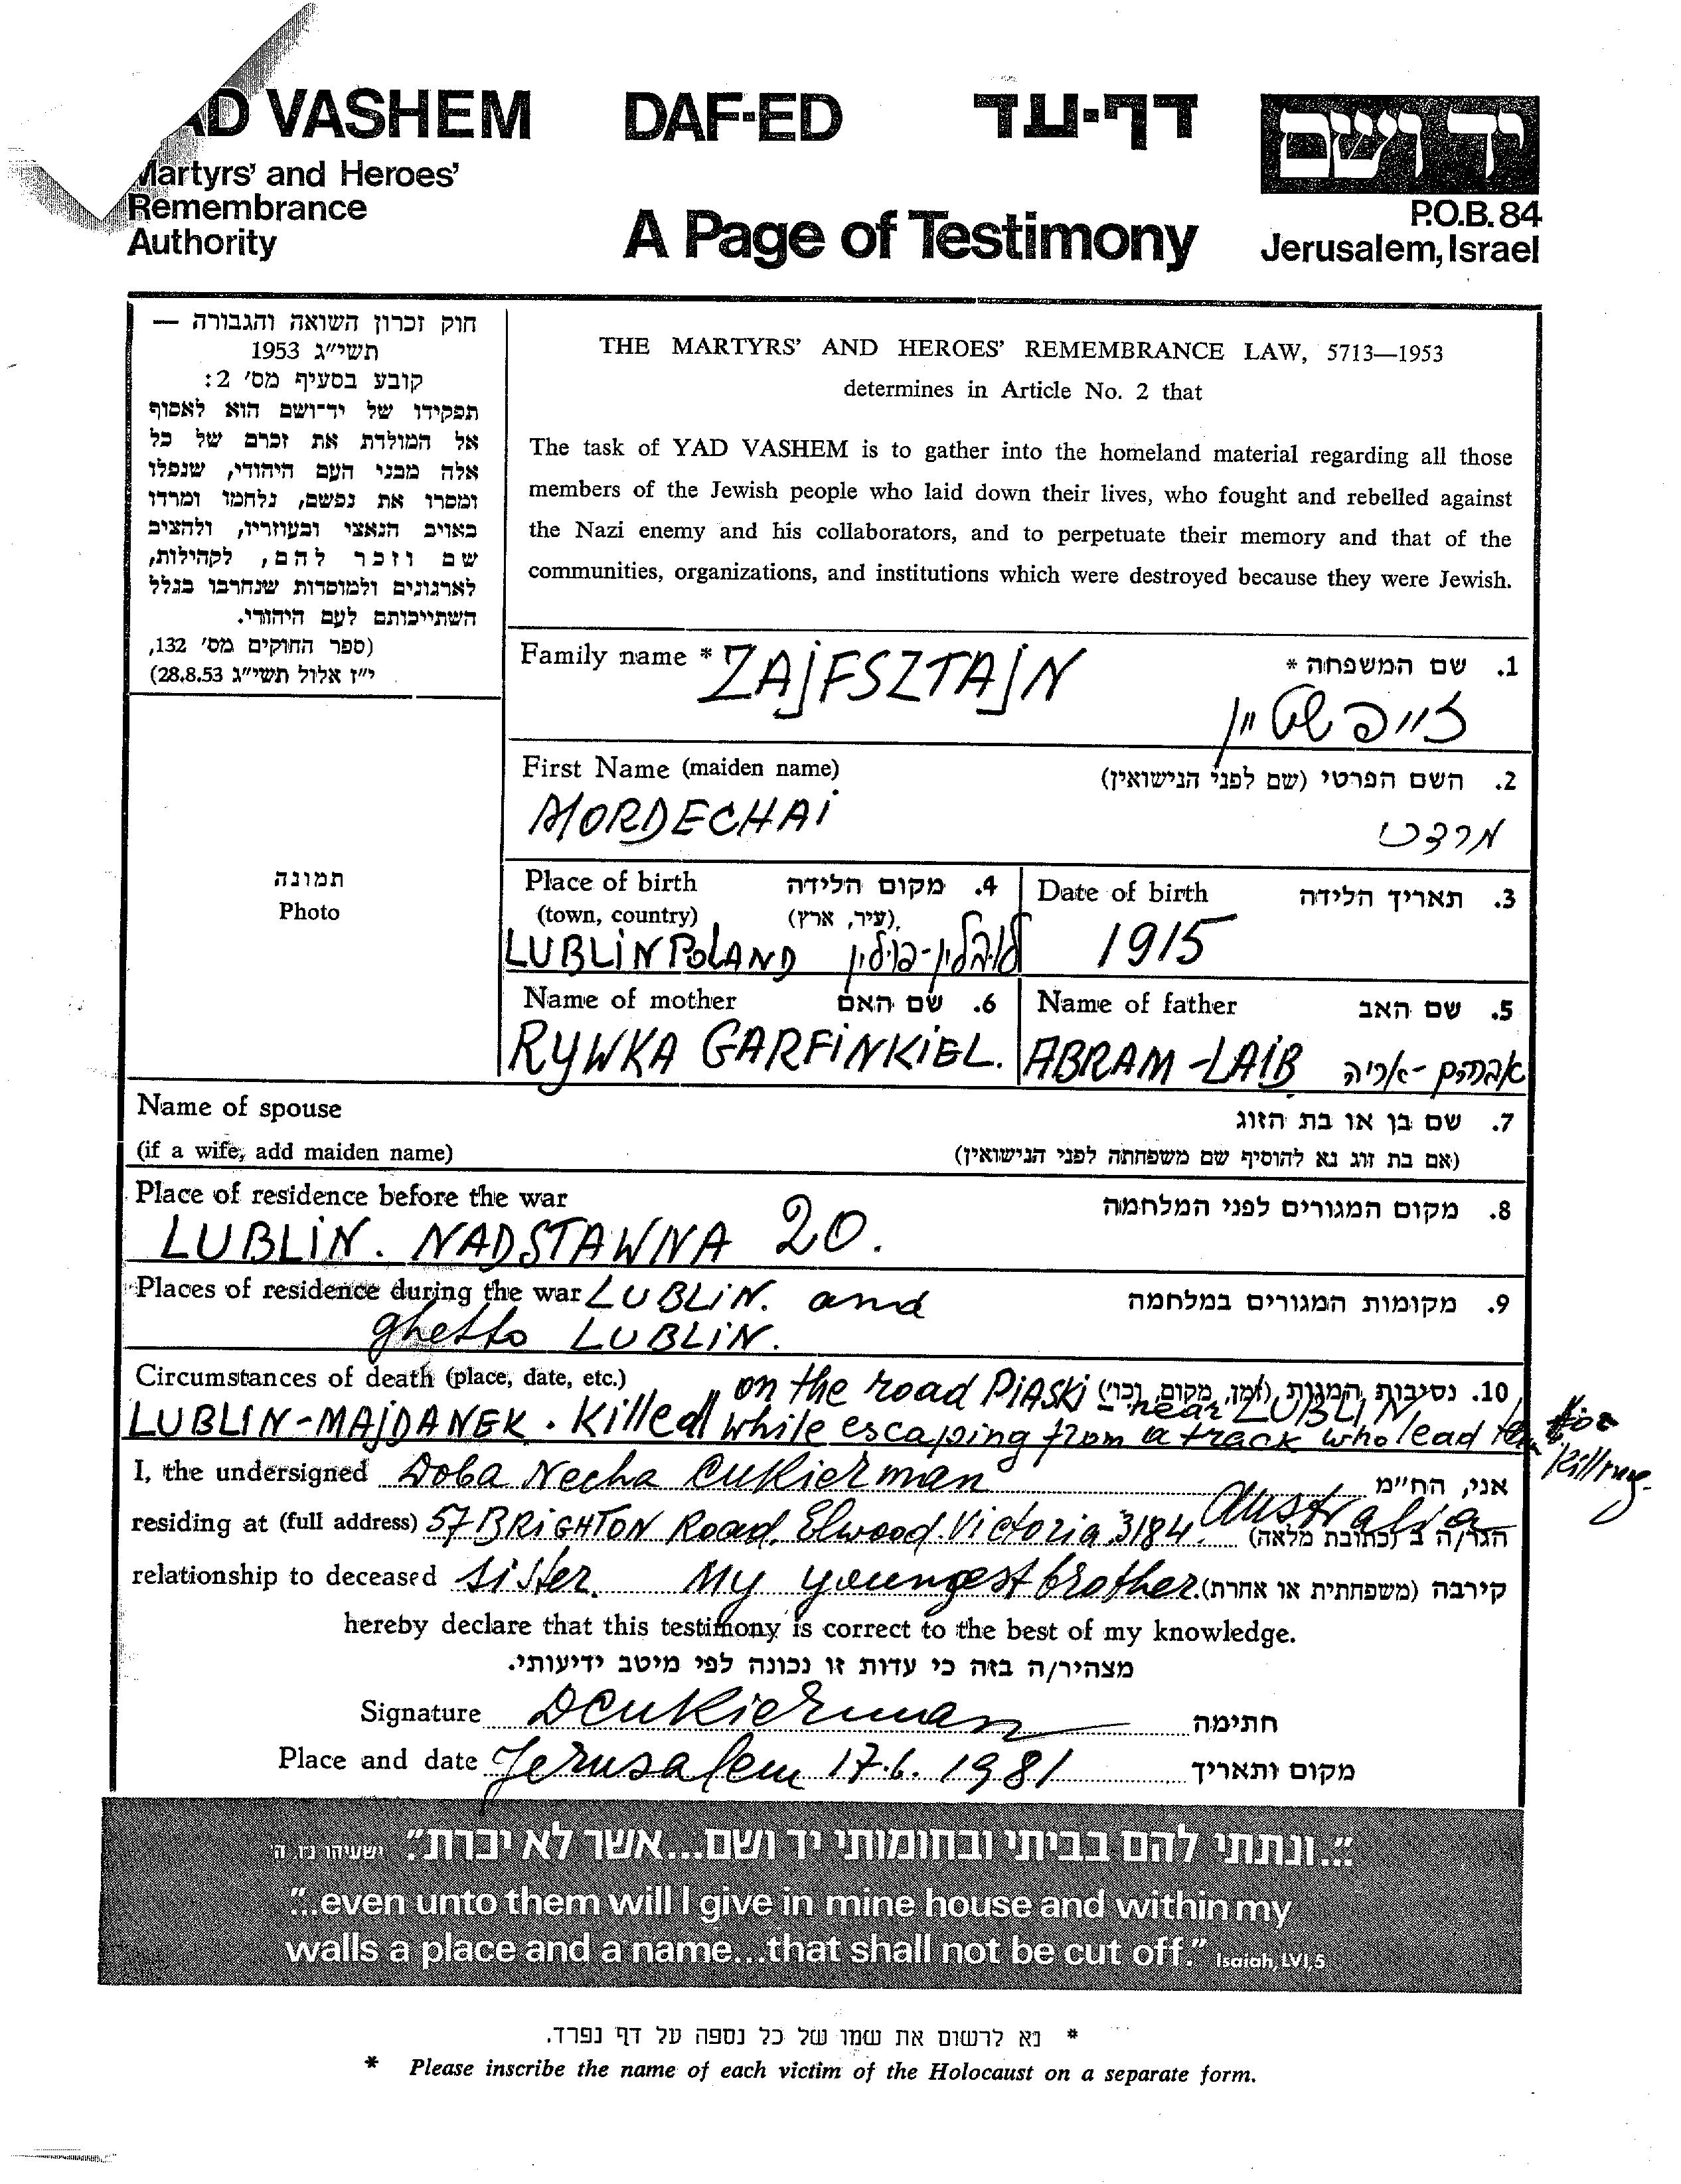 YAD VASHEM DAF-ED דף-עד יד ושם
Martyrs' and Heroes'
Remembrance
Authority
A Page of Testimony
P.O.B. 84
Jerusalem, Israel
חוק זכרון השואה והגבורה —
תשי"ג 1953
קובע בסעיף מס' 2:
תפקידו של יד-ושם הוא לאסוף
אל המולדת את זכרם של כל
אלה מבני העם היהודי, שנפלו
ומסרו את נפשם, נלחמו ומרדו
באויב הנאצי ובעוזריו, ולהציב
שם וזכר להם, לקהילות,
לארגונים ולמוסדות שנחרבו בגלל
השתייכותם לעם היהודי.
(ספר החוקים מס' 132,
י"ז אלול תשי"ג 28.8.53)
THE MARTYRS' AND HEROES' REMEMBRANCE LAW, 5713—1953
determines in Article No. 2 that
The task of YAD VASHEM is to gather into the homeland material regarding all those
members of the Jewish people who laid down their lives, who fought and rebelled against
the Nazi enemy and his collaborators, and to perpetuate their memory and that of the
communities, organizations, and institutions which were destroyed because they were Jewish.
תמונה
Photo
Family name * ZAJFSZTAJN 1. שם המשפחה *
זייפשטיין
First Name (maiden name) 2. השם הפרטי (שם לפני הנישואין)
MORDECHAI מרדכי
Place of birth 4. מקום הלידה
(town, country) (עיר, ארץ)
LUBLIN POLAND לובלין-פולין
Date of birth 3. תאריך הלידה
1915
Name of mother 6. שם האם
RYWKA GARFINKIEL.
Name of father 5. שם האב
ABRAM-LAIB אברהם-אריה
Name of spouse 7. שם בן או בת הזוג
(if a wife, add maiden name) (אם בת זוג נא להוסיף שם משפחתה לפני הנישואין)
Place of residence before the war 8. מקום המגורים לפני המלחמה
LUBLIN. NADSTAWNA 20.
Places of residence during the war LUBLIN. and 9. מקומות המגורים במלחמה
ghetto LUBLIN.
Circumstances of death (place, date, etc.) on the road PIASKI - near LUBLIN 10. נסיבות המות (זמן, מקום, וכו')
LUBLIN-MAJDANEK. Killed while escaping from a track who lead for killing.
I, the undersigned Doba Necha Cukierman אני, הח"מ
residing at (full address) 57 BRIGHTON Road, Elwood. Victoria 3184. Australia הגר/ה ב (כתובת מלאה)
relationship to deceased sister. My youngest brother. קירבה (משפחתית או אחרת)
hereby declare that this testimony is correct to the best of my knowledge.
מצהיר/ה בזה כי עדות זו נכונה לפי מיטב ידיעותי.
Signature DCukierman חתימה
Place and date Jerusalem 17.6.1981 מקום ותאריך
"...ונתתי להם בביתי ובחומותי יד ושם...אשר לא יכרת." ישעיהו נו, ה
"...even unto them will I give in mine house and within my
walls a place and a name...that shall not be cut off." Isaiah, LVI,5
* נא לרשום את שמו של כל נספה על דף נפרד.
* Please inscribe the name of each victim of the Holocaust on a separate form.